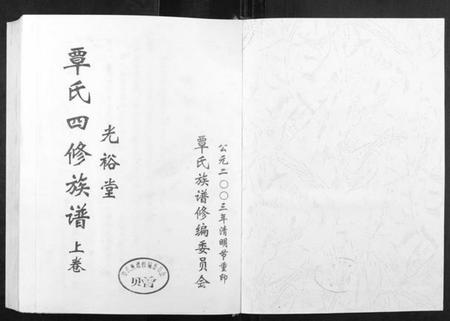 覃氏四修族谱 上卷
光裕堂
覃氏族谱修编委员会
公元二〇〇三年清明节重印